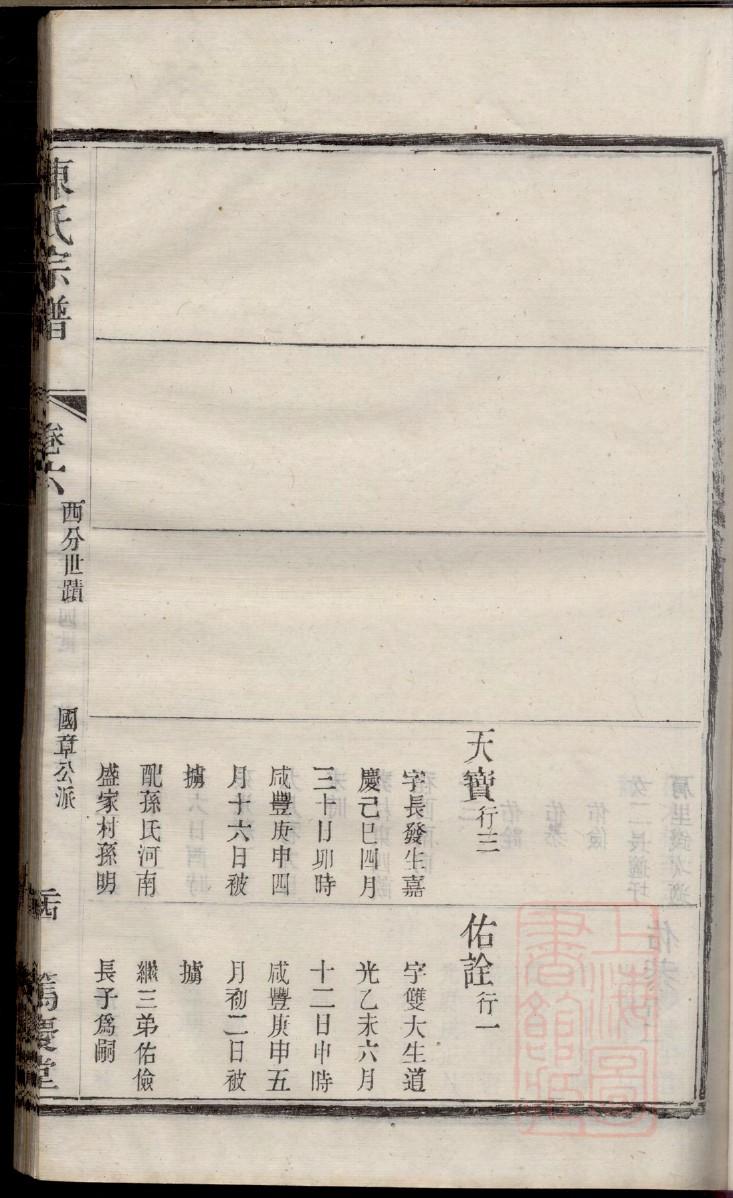 天寶行三
字長發生嘉
慶己巳四月
三十日卯時
咸豐庚申四
月十六日被
擄
配孫氏河南
盛家村孫明
佑詮行一
字雙大生道
光乙未六月
十二日申時
咸豐庚申五
月初二日被
擄
繼三弟佑儉
長子爲嗣
陳氏宗譜
卷六
西分世蹟
國章公派
篤慶堂
上海圖書館藏